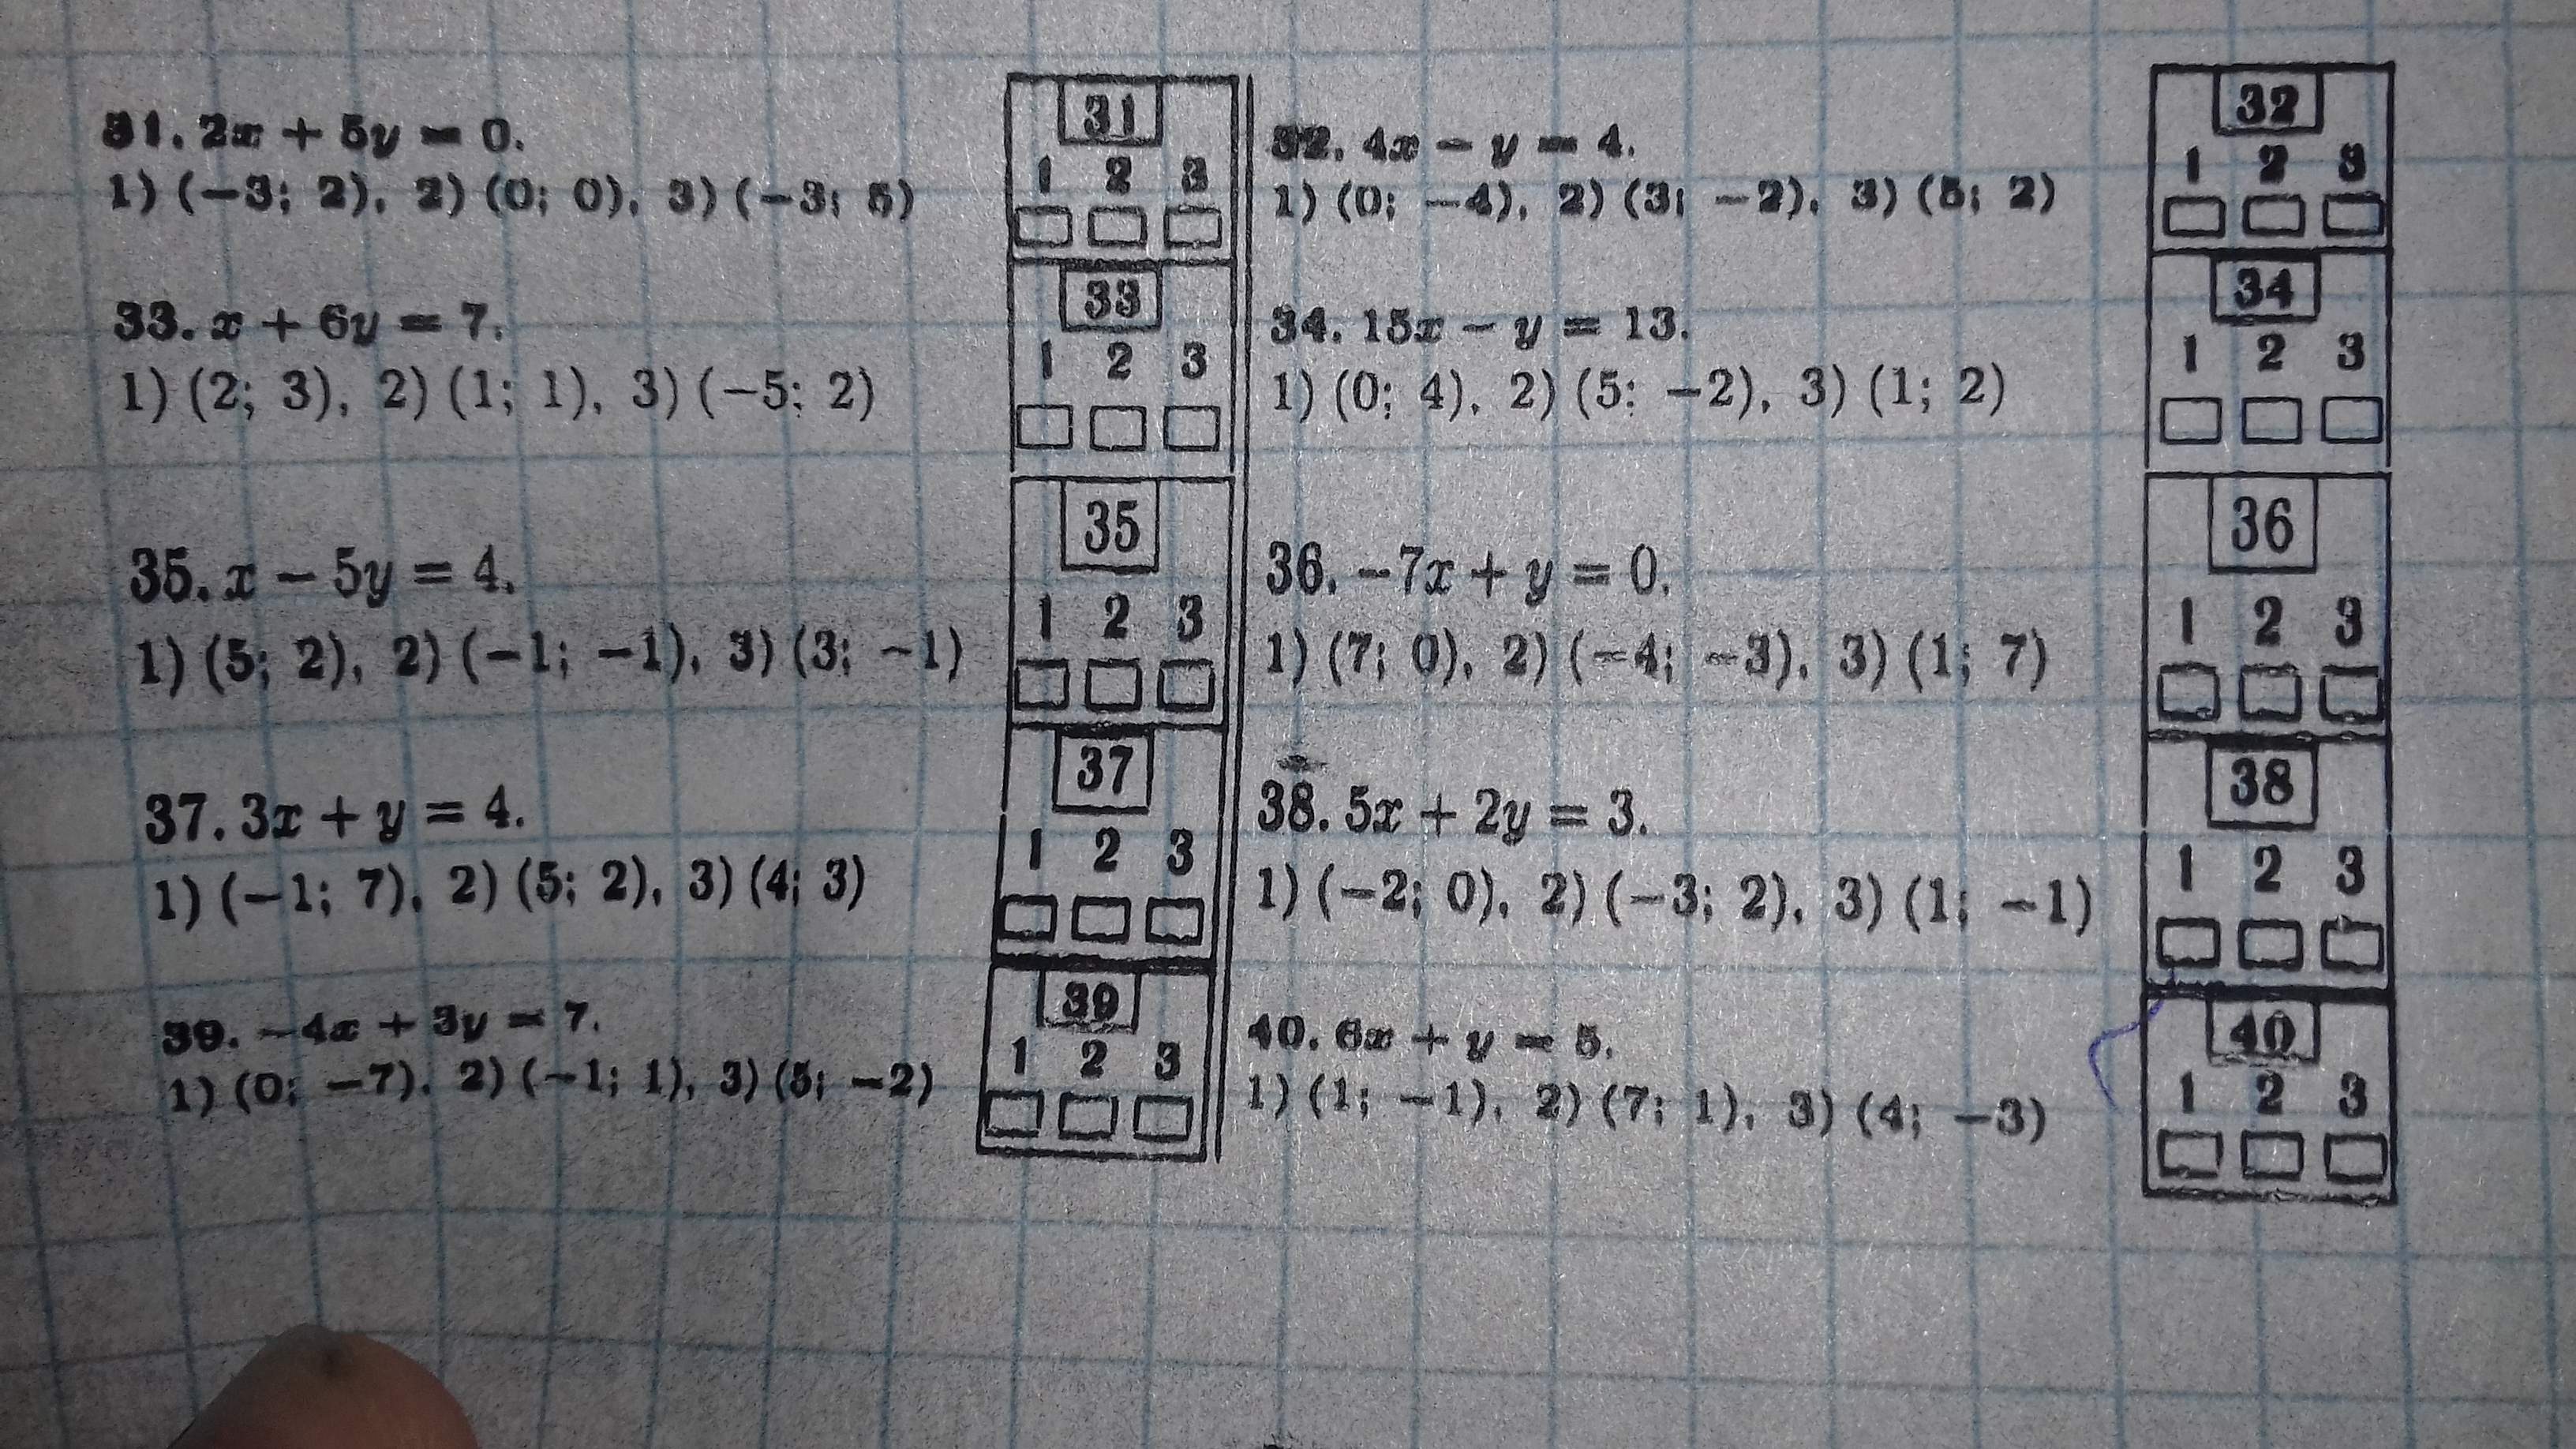 31. 2x + 5y = 0.
1) (−3; 2), 2) (0; 0), 3) (−3; 5)
31
1 2 3
32. 4x − y = 4.
1) (0; −4), 2) (3; −2), 3) (5; 2)
32
1 2 3
33. x + 6y = 7.
1) (2; 3), 2) (1; 1), 3) (−5; 2)
33
1 2 3
34. 15x − y = 13.
1) (0; 4), 2) (5; −2), 3) (1; 2)
34
1 2 3
35. x − 5y = 4.
1) (5; 2), 2) (−1; −1), 3) (3; −1)
35
1 2 3
36. −7x + y = 0.
1) (7; 0), 2) (−4; −3), 3) (1; 7)
36
1 2 3
37. 3x + y = 4.
1) (−1; 7), 2) (5; 2), 3) (4; 3)
37
1 2 3
38. 5x + 2y = 3.
1) (−2; 0), 2) (−3; 2), 3) (1; −1)
38
1 2 3
39. −4x + 3y = 7.
1) (0; −7), 2) (−1; 1), 3) (5; −2)
39
1 2 3
40. 6x + y = 5.
1) (1; −1), 2) (7; 1), 3) (4; −3)
40
1 2 3